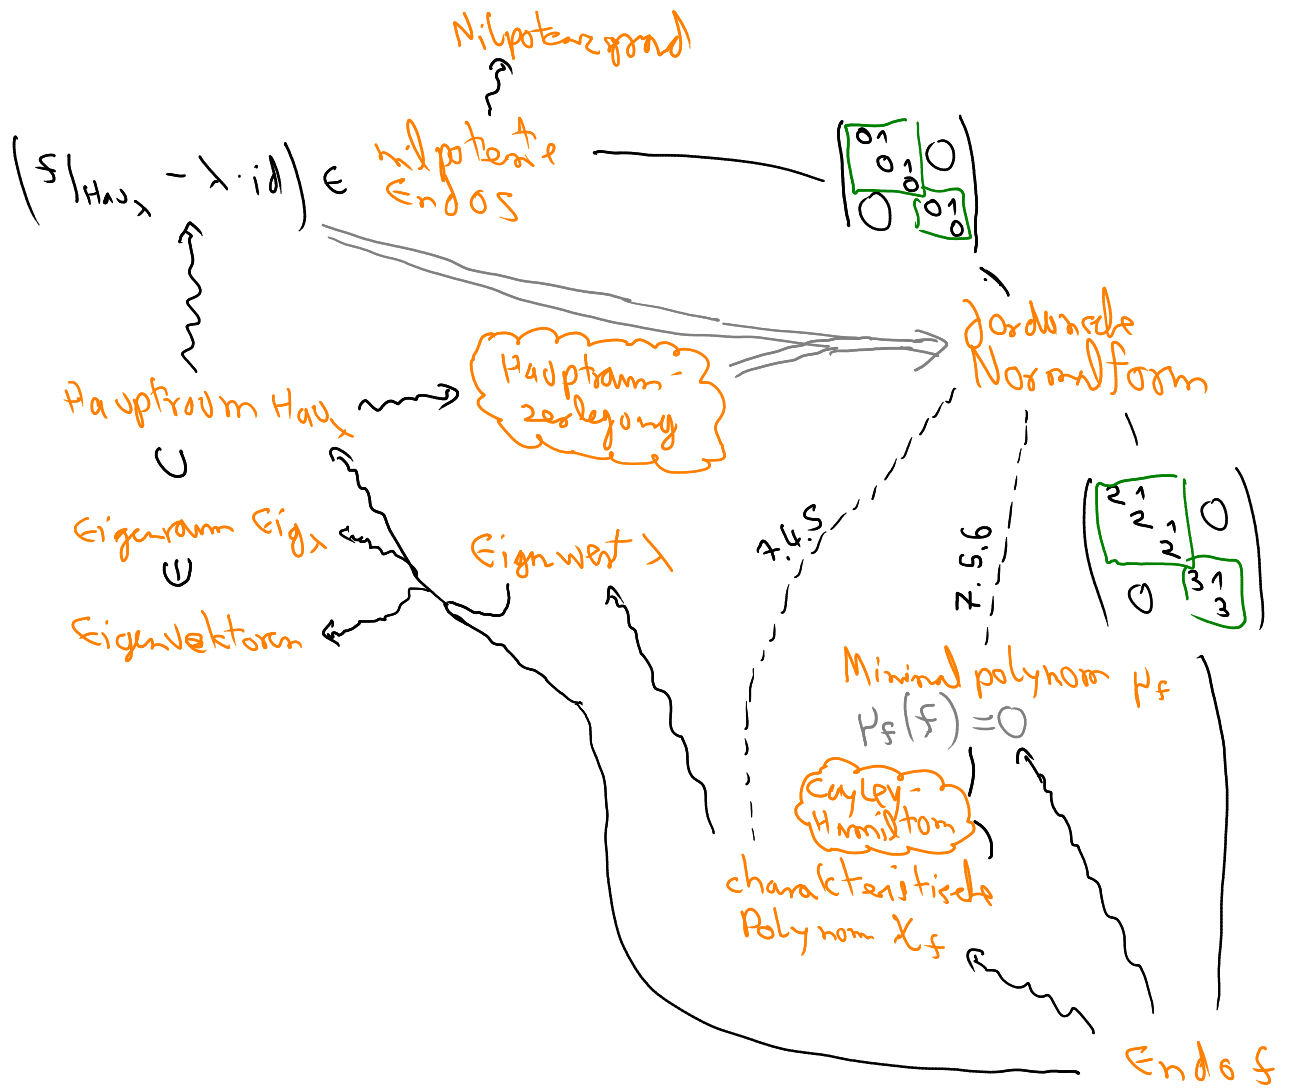 Nilpotenzgrad
(f|Hauλ - λ·id) ∈ nilpotente
Endos
0 1
0 1 0
0
0 0 1
0
Jordansche
Normalform
Hauptraum-
zerlegung
Hauptraum Hauλ
∪
Eigenraum Eigλ
Eigenvektoren
Eignwert λ
7.4.5
7.5.6
2 1
2 1 0
2
0 3 1
3
Minimalpolynom μf
μf(f) = 0
Cayley-
Hamilton
charakteristische
Polynom χf
Endo f